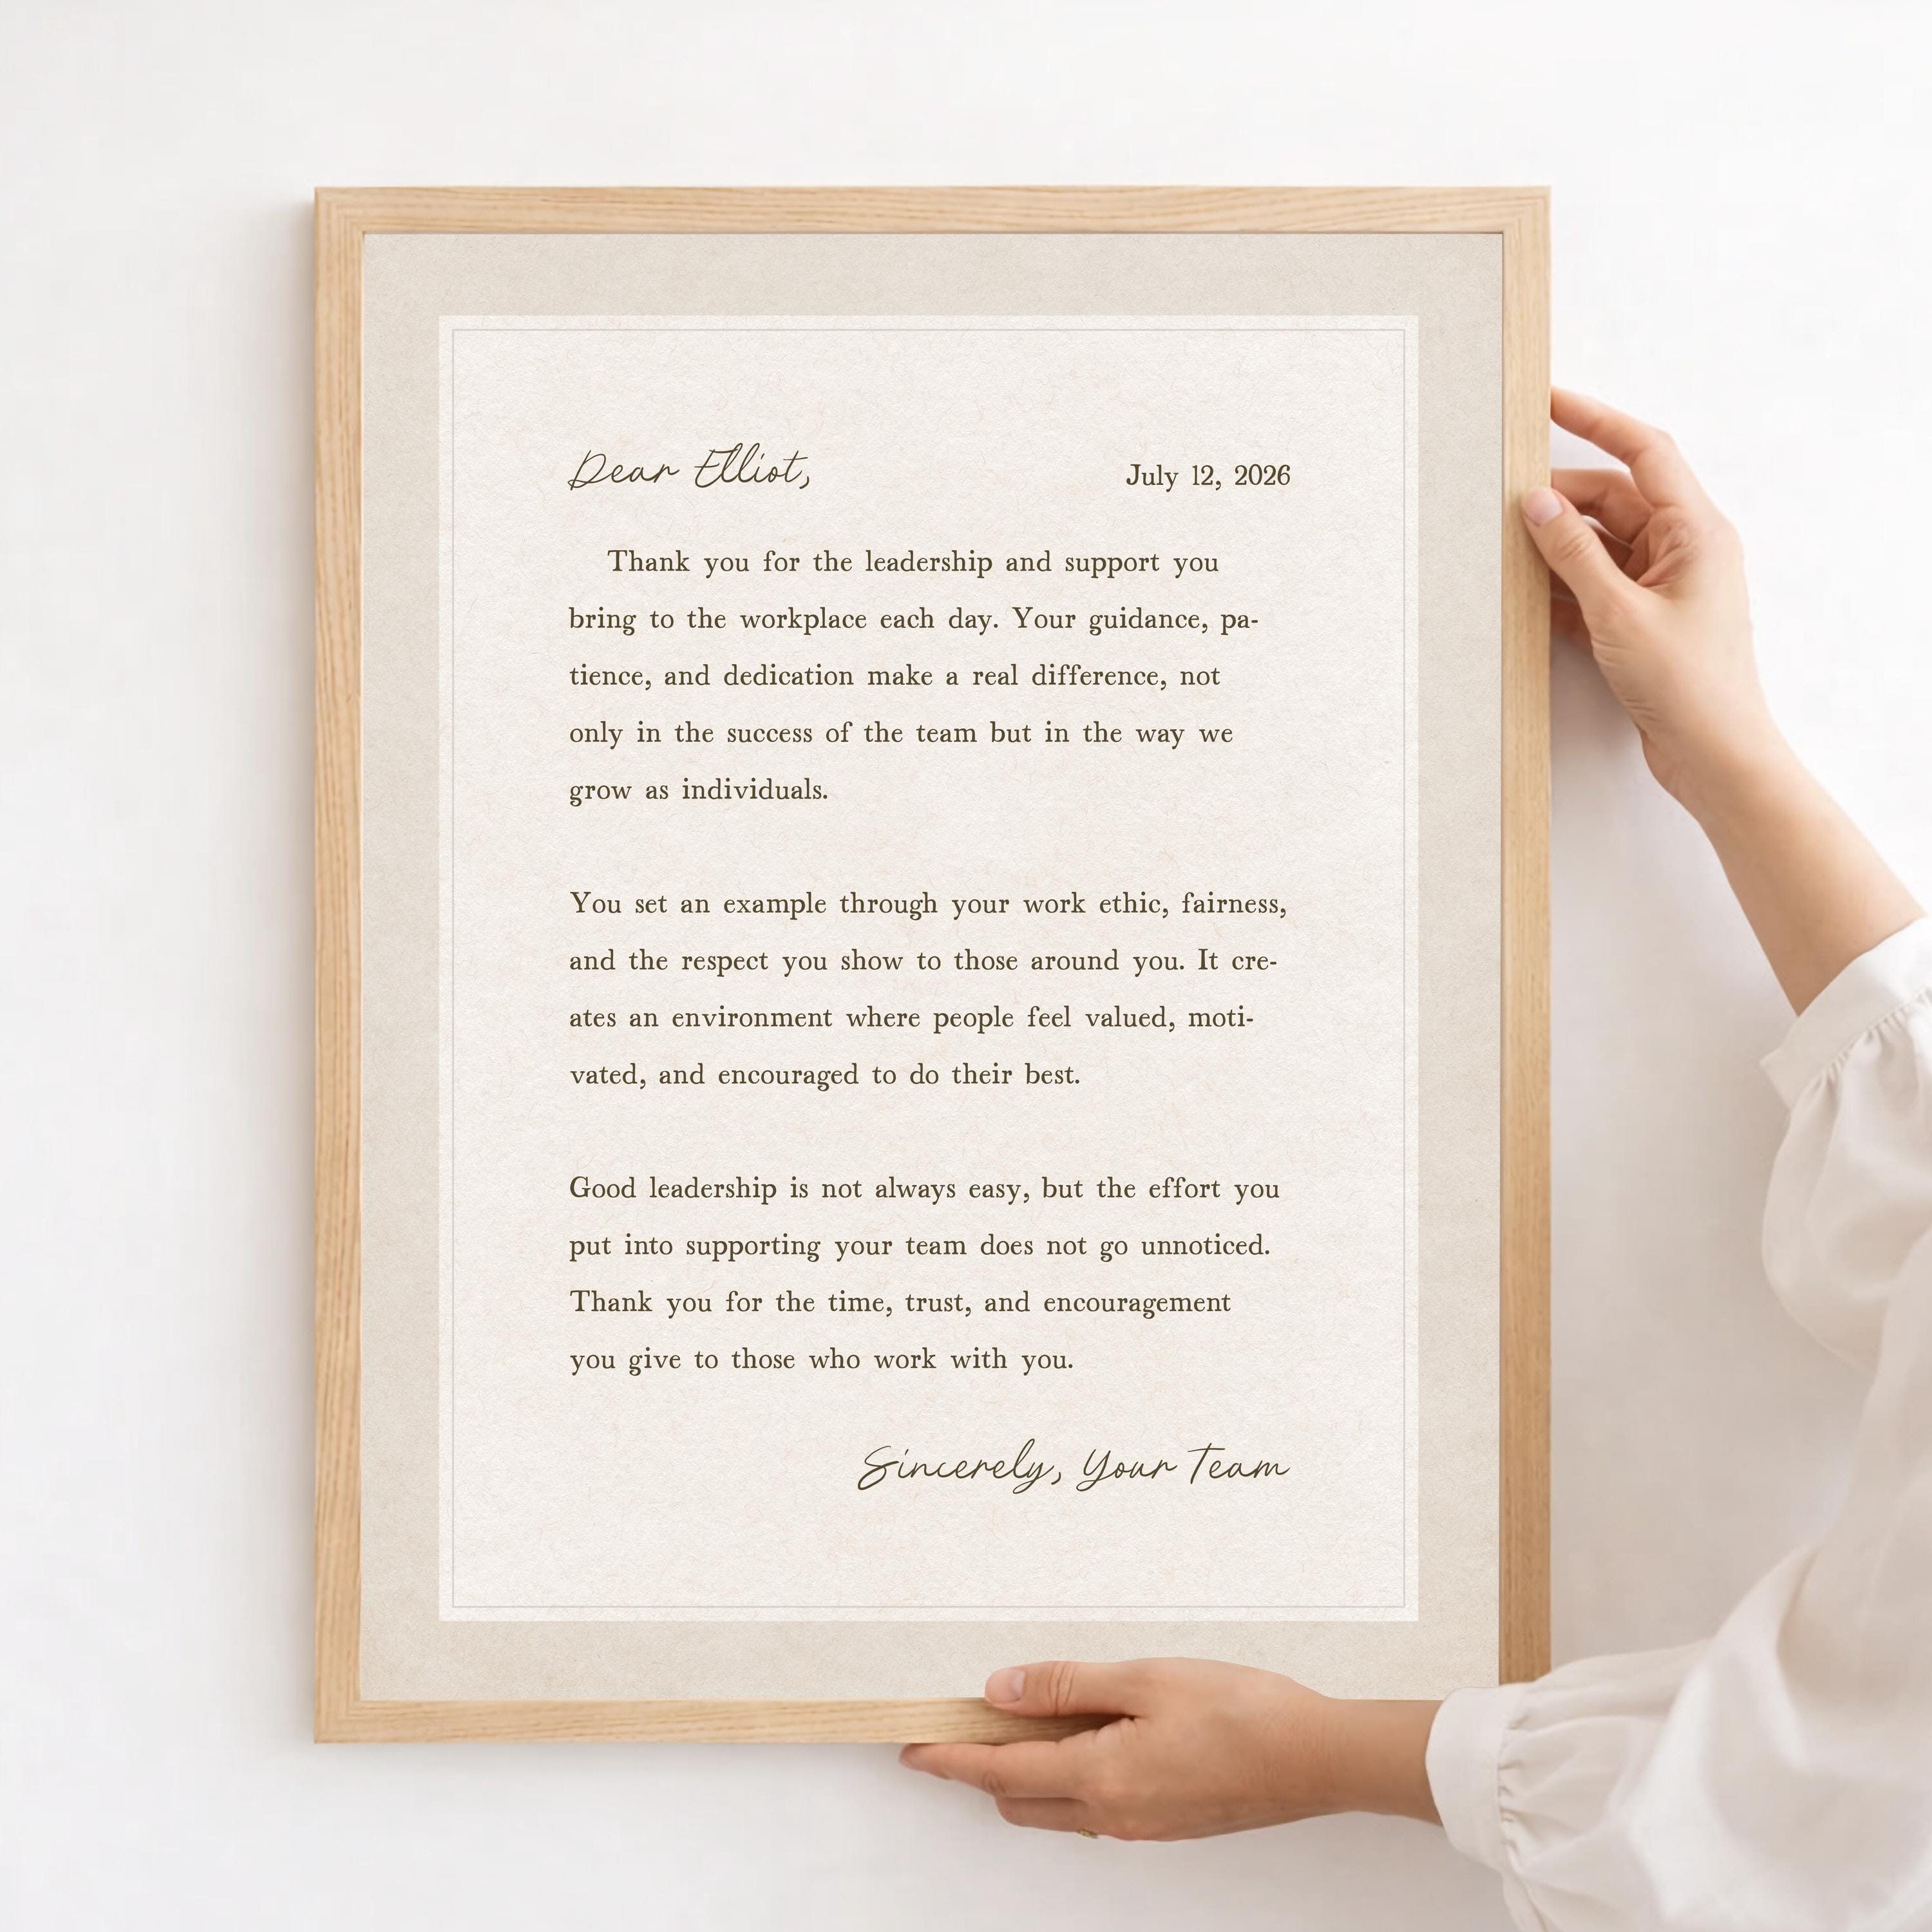 Dear Elliot,
July 12, 2026
Thank you for the leadership and support you
bring to the workplace each day. Your guidance, pa-
tience, and dedication make a real difference, not
only in the success of the team but in the way we
grow as individuals.
You set an example through your work ethic, fairness,
and the respect you show to those around you. It cre-
ates an environment where people feel valued, moti-
vated, and encouraged to do their best.
Good leadership is not always easy, but the effort you
put into supporting your team does not go unnoticed.
Thank you for the time, trust, and encouragement
you give to those who work with you.
Sincerely, Your Team